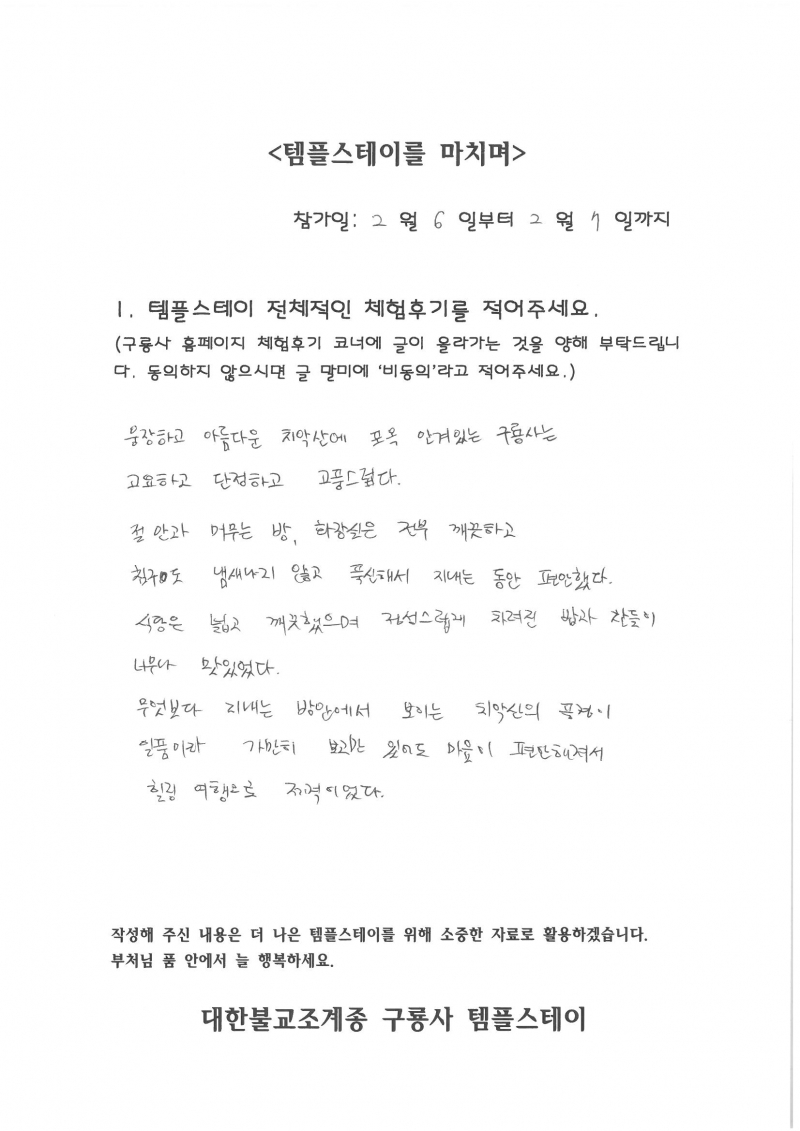 <템플스테이를 마치며>
참가일: 2 월 6 일부터 2 월 7 일까지
1. 템플스테이 전체적인 체험후기를 적어주세요.
(구룡사 홈페이지 체험후기 코너에 글이 올라가는 것을 양해 부탁드립니
다. 동의하지 않으시면 글 말미에 '비동의'라고 적어주세요.)
웅장하고 아름다운 치악산에 포옥 안겨있는 구룡사는
고요하고 단정하고 고풍스럽다.
절 안과 머무는 방, 화장실은 전부 깨끗하고
침구도 냄새나지 않고 푹신해서 지내는 동안 편안했다.
식당은 넓고 깨끗했으며 정성스럽게 차려진 밥과 찬들이
너무나 맛있었다.
무엇보다 지내는 방안에서 보이는 치악산의 풍경이
일품이라 가만히 보고만 있어도 마음이 편안해져서
힐링 여행으로 제격이었다.
작성해 주신 내용은 더 나은 템플스테이를 위해 소중한 자료로 활용하겠습니다.
부처님 품 안에서 늘 행복하세요.
대한불교조계종 구룡사 템플스테이